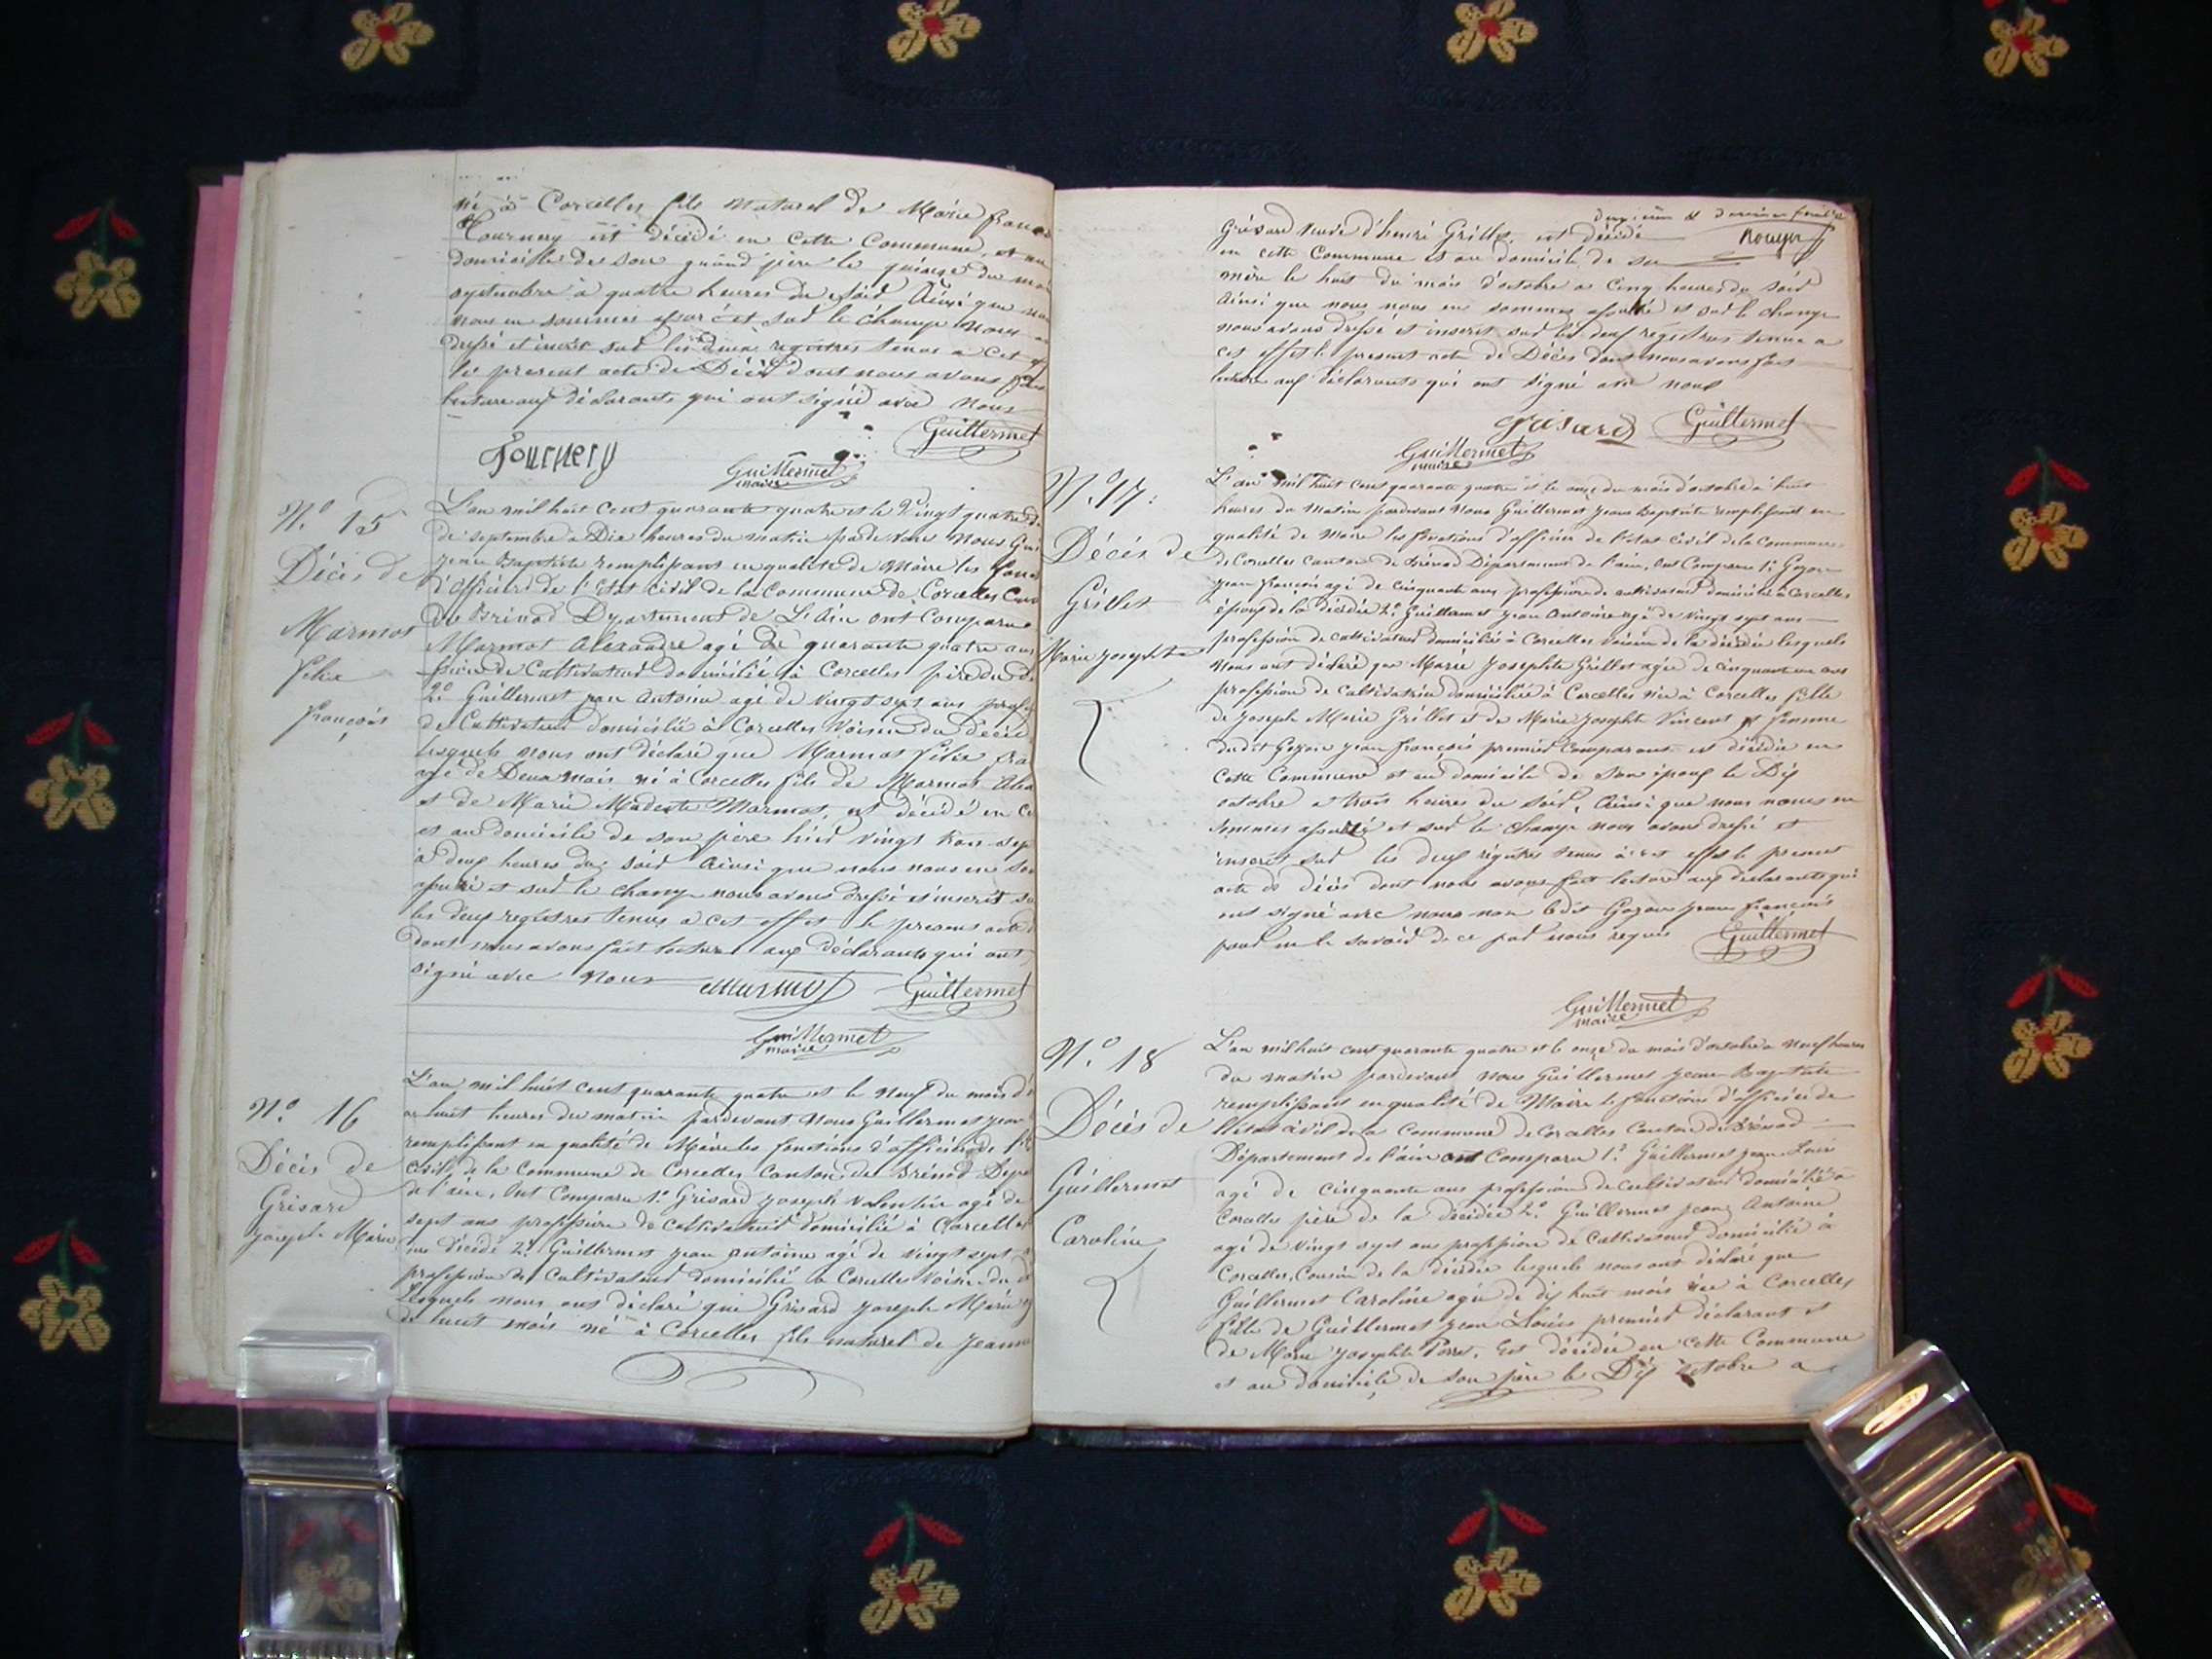 né à Corcelles fils naturel de Marie
Tournery est décédé en cette Commune, et au
domicille de son grand père le quinze du
septembre à quatre heures du soir Ainsi que
nous en sommes assuré et sur le champ Nous
dressé et inscrit sur les deux registres tenus a cet
le present acte de Décès dont nous avons
lecture aux déclarants qui ont signé avec Nous
Guillermet
Tournery
Guillermet
maire
N.º 15
Décès de
Marmot
Felix
françois
L'an mil huit cent quarante quatre et le Vingt quatre
de septembre a Dix heures du matin pardevant Nous
jean Baptiste remplissant en qualité de Maire les
d'officier de l'Etat Civil de la Commune de Corcelles
de Brénod Département de L'Ain ont Comparu
Marmot Alexandre agé de quarante quatre ans
de Cultivateur domicilié à Corcelles père du
2º Guillermet jean Antoine agé de vingt sept ans
de Cultivateur domicilié à Corcelles Voisin du
lesquels nous ont déclaré que Marmot Felix
agé de Deux mois né à Corcelles fils de Marmot
et de Marie Modeste Marmot, est décédé en
et au domicile de son pere hier vingt trois
à deux heures du soir Ainsi que nous nous en
assuré et sur le champ nous avons dressé et inscrit
les deux registres tenus a cet effet le present acte
dont nous avons fait lecture aux déclarants qui ont
signé avec Nous Marmot Guillermet
Guillermet
maire
N.º 16
Décès de
Grisard
joseph Marie
L'an mil huit cent quarante quatre et le Neuf du mois
a huit heures du matin pardevant Nous Guillermet jean
remplissant en qualité de Maire les fonctions d'officier de
civil, de la Commune de Corcelles Canton de Brénod
de l'ain, Ont Comparu 1º Grisard joseph Valentin agé de
sept ans profession de cultivateur domicilié à Corcelles
du décédé 2º Guillermet jean Antoine agé de vingt sept
profession de Cultivateur domicilié a Corcelles Voisin du
lesquels nous ont déclaré que Grisard joseph Marie
de huit mois né à Corcelles fils naturel de jeanne
Grisard veuve d'henri Grillet, est décédé
Rouyer
en cette Commune et au domicile de sa
mère le huit du mois d'octobre a Cinq heures du soir
Ainsi que nous nous en sommes assuré et sur le champ
nous avons dressé et inscrit sur les deux registres tenus a
cet effet le present acte de Décès dont nous avons fait
lecture aux déclarants qui ont signé avec nous
Grisard Guillermet
Guillermet
maire
N.º 17:
Décès de
Grillet
Marie josephte
L'an mil huit cent quarante quatre et le onze du mois d'octobre à huit
heures du matin pardevant Nous Guillermet jean Baptiste remplissant en
qualité de Maire les fonctions d'officier de l'état civil de la Commune
de Corcelles Canton de Brénod Département de l'ain, Ont Comparu 1º Goyon
jean françois agé de cinquante ans profession de cultivateur domicilié à Corcelles
époux de la décédée 2º Guillermet jean Antoine agé de Vingt sept ans
profession de cultivateur domicilié à Corcelles voisin de la décédée lesquels
Nous ont déclaré que Marie josephte Grillet agée de cinquante un ans
profession de cultivatrice domiciliée à Corcelles née à Corcelles fille
de joseph Marie Grillet et de Marie josephte Vincent et femme
dudit Goyon jean françois premier Comparant est décédée en
cette Commune et au domicile de son époux le Dix
octobre a trois heures du soir, Ainsi que nous nous en
sommes assuré et sur le champ nous avons dressé et
inscrit sur les deux régistres tenus à cet effet le present
acte de décès dont nous avons fait lecture aux déclarants qui
ont signé avec nous non ledit Goyon jean françois
pour ne le savoir de ce par nous requis Guillermet
Guillermet
maire
N.º 18
Décès de
Guillermet
Caroline
L'an mil huit cent quarante quatre et le onze du mois d'octobre a neuf heures
du matin pardevant nous Guillermet jean Baptiste
remplissant en qualité de Maire les fonctions d'officier de
l'état civil de la Commune de Corcelles Canton de Brénod
Département de l'ain ont Comparu 1º Guillermet jean Louis
agé de cinquante ans profession de cultivateur domicilié à
Corcelles père de la décédée 2º Guillermet jean Antoine
agé de vingt sept ans profession de Cultivateur domicilié à
Corcelles, Cousin de la décédée lesquels nous ont déclaré que
Guillermet Caroline agée de dix huit mois née à Corcelles
fille de Guillermet jean Louis premier déclarant et
de Marie josephte, Est décédée en cette Commune
et au domicile de son père le Dix octobre a